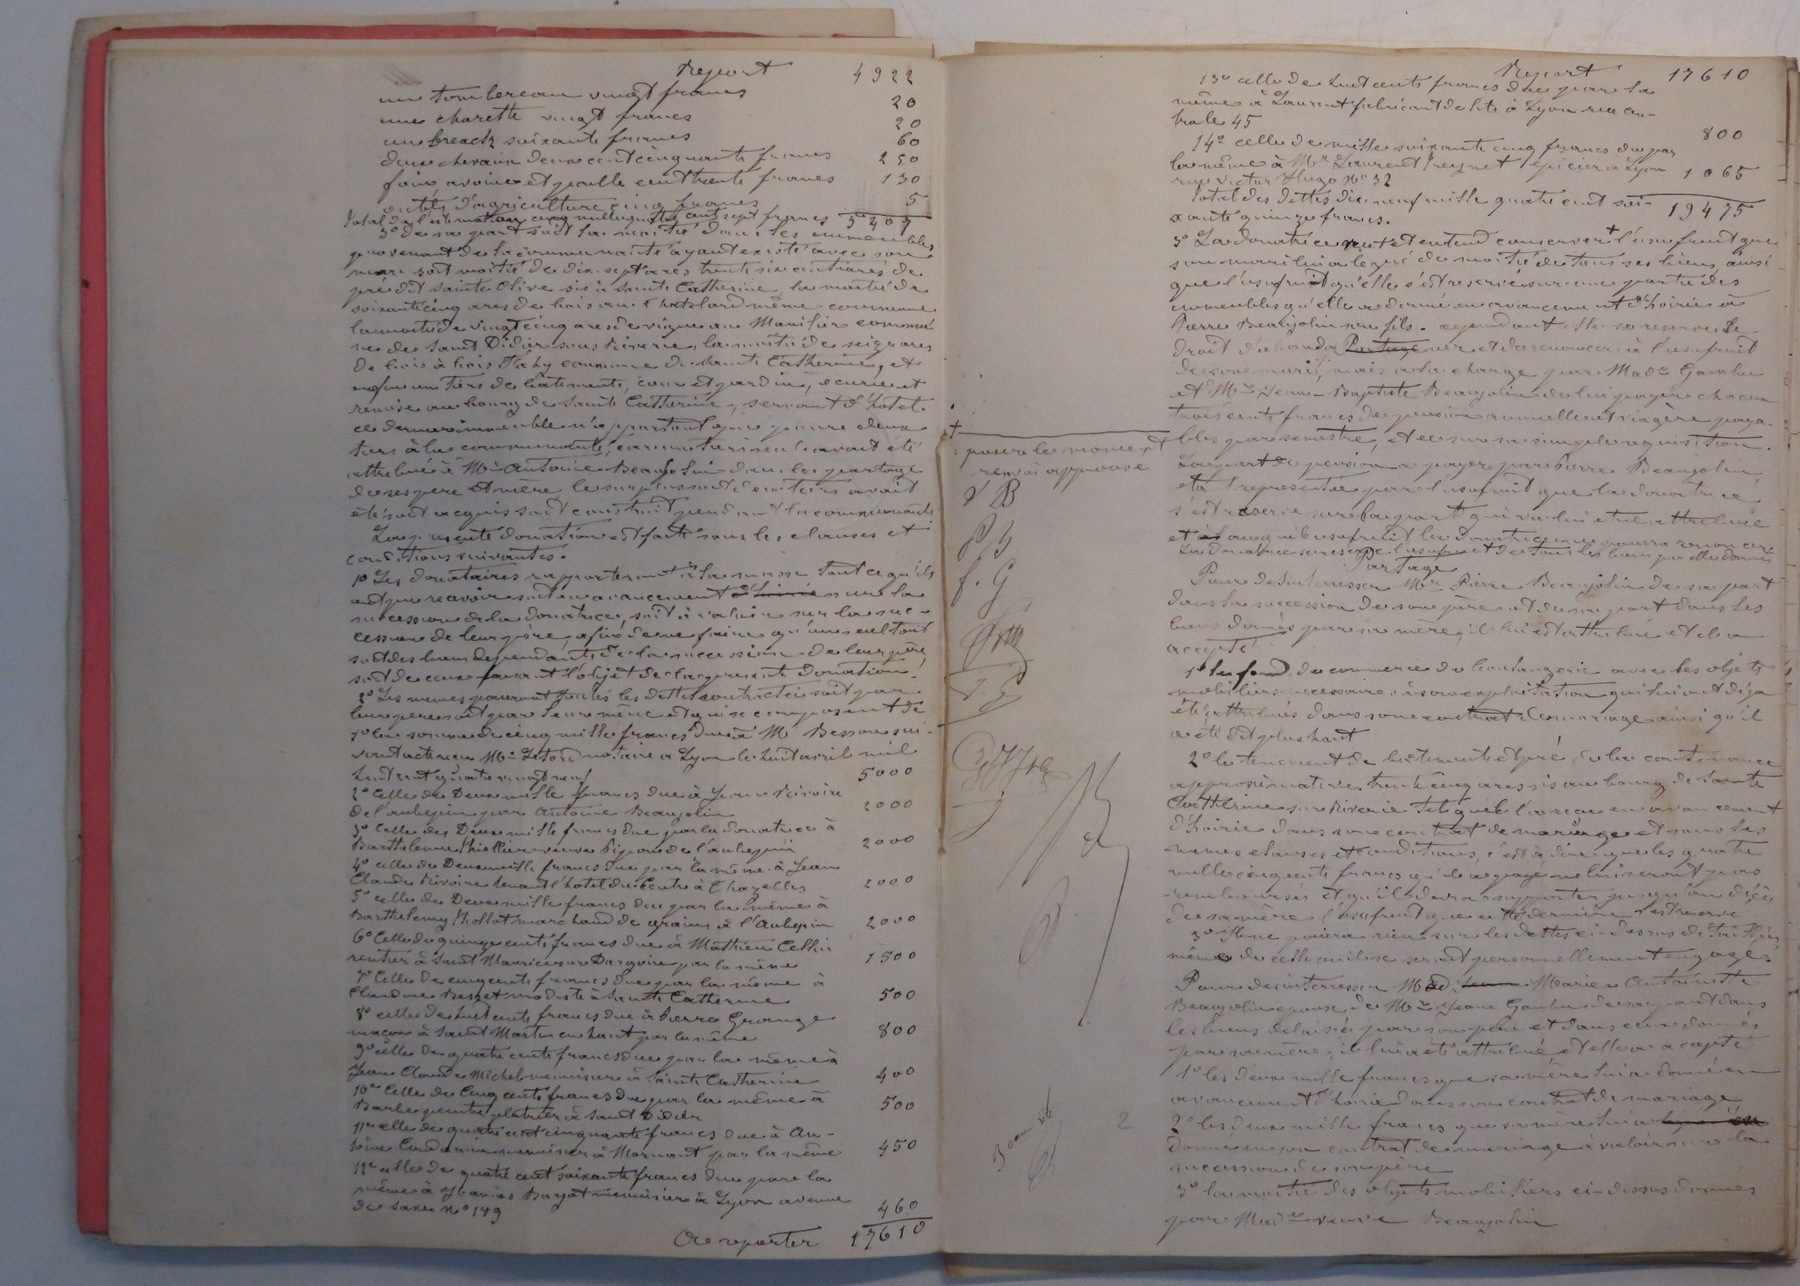 Report 4922
un tombereau vingt francs 20
une charette vingt francs 20
un break soixante francs 60
deux chevaux deux cent cinquante francs 250
foin avoine et paille cent trente francs 130
outils d'agriculture cinq francs 5
Total de l'estimation cinq mille quatre cent sept francs 5407
3º De sa part soit la moitié dans les immeubles
provenant de la communauté ayant existé avec son
mari soit moitié de dix-sept ares trente six centiares de
pré dit Sainte Olive sis à Sainte Catherine, la moitié de
soixante cinq ares de bois au Chatelard même commune
la moitié de vingt cinq ares de vigne au Manifier commu
ne de Saint Didier sous Riverie, la moitié de seize ares
de bois à bois commune de Sainte Catherine, et
enfin un tiers de bâtiments, cour et jardin, écurie et
remise au bourg de Sainte Catherine, servant d'hotel.
ce dernier immeuble n'appartient que pour deux
tiers à la communauté, car un tiers en avait été
attribué à Mr Antoine Beaujolin dans les partages
de ses père et mère le surplus soit deux tiers avait
été soit acquis soit construit pendant la communauté
La présente donation est faite sous les clauses et
conditions suivantes.
1º Les donataires rapporteront à la masse tout ce qu'ils
ont pu recevoir soit en avancement d'hoirie sur la
succession de la donatrice, soit à valoir sur la suc-
cession de leur père afin de ne faire qu'un seul tout
soit des biens dépendants de la succession de leur père
soit de ceux faisant l'objet de la présente donation.
2º Les mêmes payeront toutes les dettes contractées soit par
leur père soit par leur mère et qui se composent de
1º la somme de cinq mille francs due à Mr Besson sui-
vant acte reçu Me Letord notaire à Lyon le huit avril mil
huit cent quatre vingt neuf 5000
2º celle de Deux mille francs due à Jean Rivoire
de l'aubepin par Antoine Beaujolin 2000
3º Celle de Deux mille francs due par la donatrice à
Barthelemie Thiollier veuve Pigeon de l'aubepin 2000
4º celle de Deux mille francs due par la même à Jean
Claude Rivoire tenant l'hotel du Centre à Chazelles 2000
5º celle de Deux mille francs due par la même à
Barthelemy Thollot marchand de grains à l'Aubepin 2000
6º Celle de quinze cents francs due à Mathieu
rentier à Saint Maurice sur Dargoire par la même 1500
7º Celle de cinq cents francs due par la même à
Claudine modiste à Sainte Catherine 500
8º celle de huit cents francs due à Pierre Grange
maçon à Saint Martin en haut par la même 800
9º celle de quatre cents francs due par la même à
Jean Claude Michel menuisier à Sainte Catherine 400
10º Celle de Cinq cents francs due par la même à
Barbe peintre platrier à Saint Didier 500
11º celle de quatre cent cinquante francs due à An-
toine menuisier à Mornant par la même 450
12º celle de quatre cent soixante francs due par la
même à menuisier à Lyon avenue
de Saxe nº 189 460
A reporter 17610
Report 17610
13º celle de huit cents francs due par la
même à Laurent fabricant de lits à Lyon rue cen-
trale 45 800
14º celle de mille soixante cinq francs due par
la même à Mr Laurent épicier à Lyon
rue Victor Hugo Nº 32 1065
Total des dettes dix neuf mille quatre cent soi- 19475
xante quinze francs.
3º La donatrice veut et entend conserver + l'usufruit que
son mari lui a légué de moitié de tous ses biens, ainsi
que l'usufruit qu'elle s'est réservé sur une partie des
immeubles qu'elle a donné en avancement d'hoirie à
Pierre Beaujolin son fils. cependant elle se réserve le
droit d'abandonner et de renoncer à l'usufruit
de son mari, mais à la charge par Made Gambu
et Mr Jean-Baptiste Beaujolin de lui payer chacun
trois cents francs de pension annuelle et viagère paya-
bles par semestre, et ce sur sa simple requisition.
La part de pension à payer par Pierre Beaujolin
étant représentée par l'usufruit que la donatrice
s'est réservé sur la part qui va lui être attribuée
et auquel usufruit la Donatrice ne pourra renoncer
La donatrice se réserve l'usufruit et de tous les biens par elle donnés
Partage
Pour desinteresser Mr Pierre Beaujolin de sa part
dans la succession de son père et de sa part dans les
biens donnés par sa mère, il lui est attribué et il a
accepté
1º le fond de commerce de boulangerie avec les objets
mobiliers necessaires à son exploitation qui lui ont déjà
été attribués dans son contrat de mariage ainsi qu'il
a été dit plus haut
2º le tenement de bâtiments et pré de la contenance
approximative trente cinq ares sis au bourg de Sainte
Catherine sur Riverie tel qu'il l'a reçu en avancement
d'hoirie dans son contrat de mariage et sous les
mêmes clauses et conditions, c'est à dire que les quatre
mille cinq cents francs qu'il a payé ne lui seront pas
remboursés et qu'il devra supporter jusqu'au décès
de sa mère l'usufruit que cette dernière s'est réservé
3º Il ne paiera rien sur les dettes ci-dessus détaillées
même de celles où il se serait personnellement engagé.
Pour desinteresser Made Marie Antoinette
Beaujolin epouse de Mr Jean Gambu de sa part dans
les biens délaissés par son père et dans ceux donnés
par sa mère, il lui a été attribué et elle a accepté
1º les deux mille francs que sa mère lui a donné en
avancement d'hoirie dans son contrat de mariage
2º les deux mille francs que sa mère lui a
donné en son contrat de mariage à valoir sur la
succession de son père
3º la moitié des objets mobiliers ci-dessus donnés
par Made veuve Beaujolin
+
pour le moment
renvoi approuvé
V B
P B
f. G
2